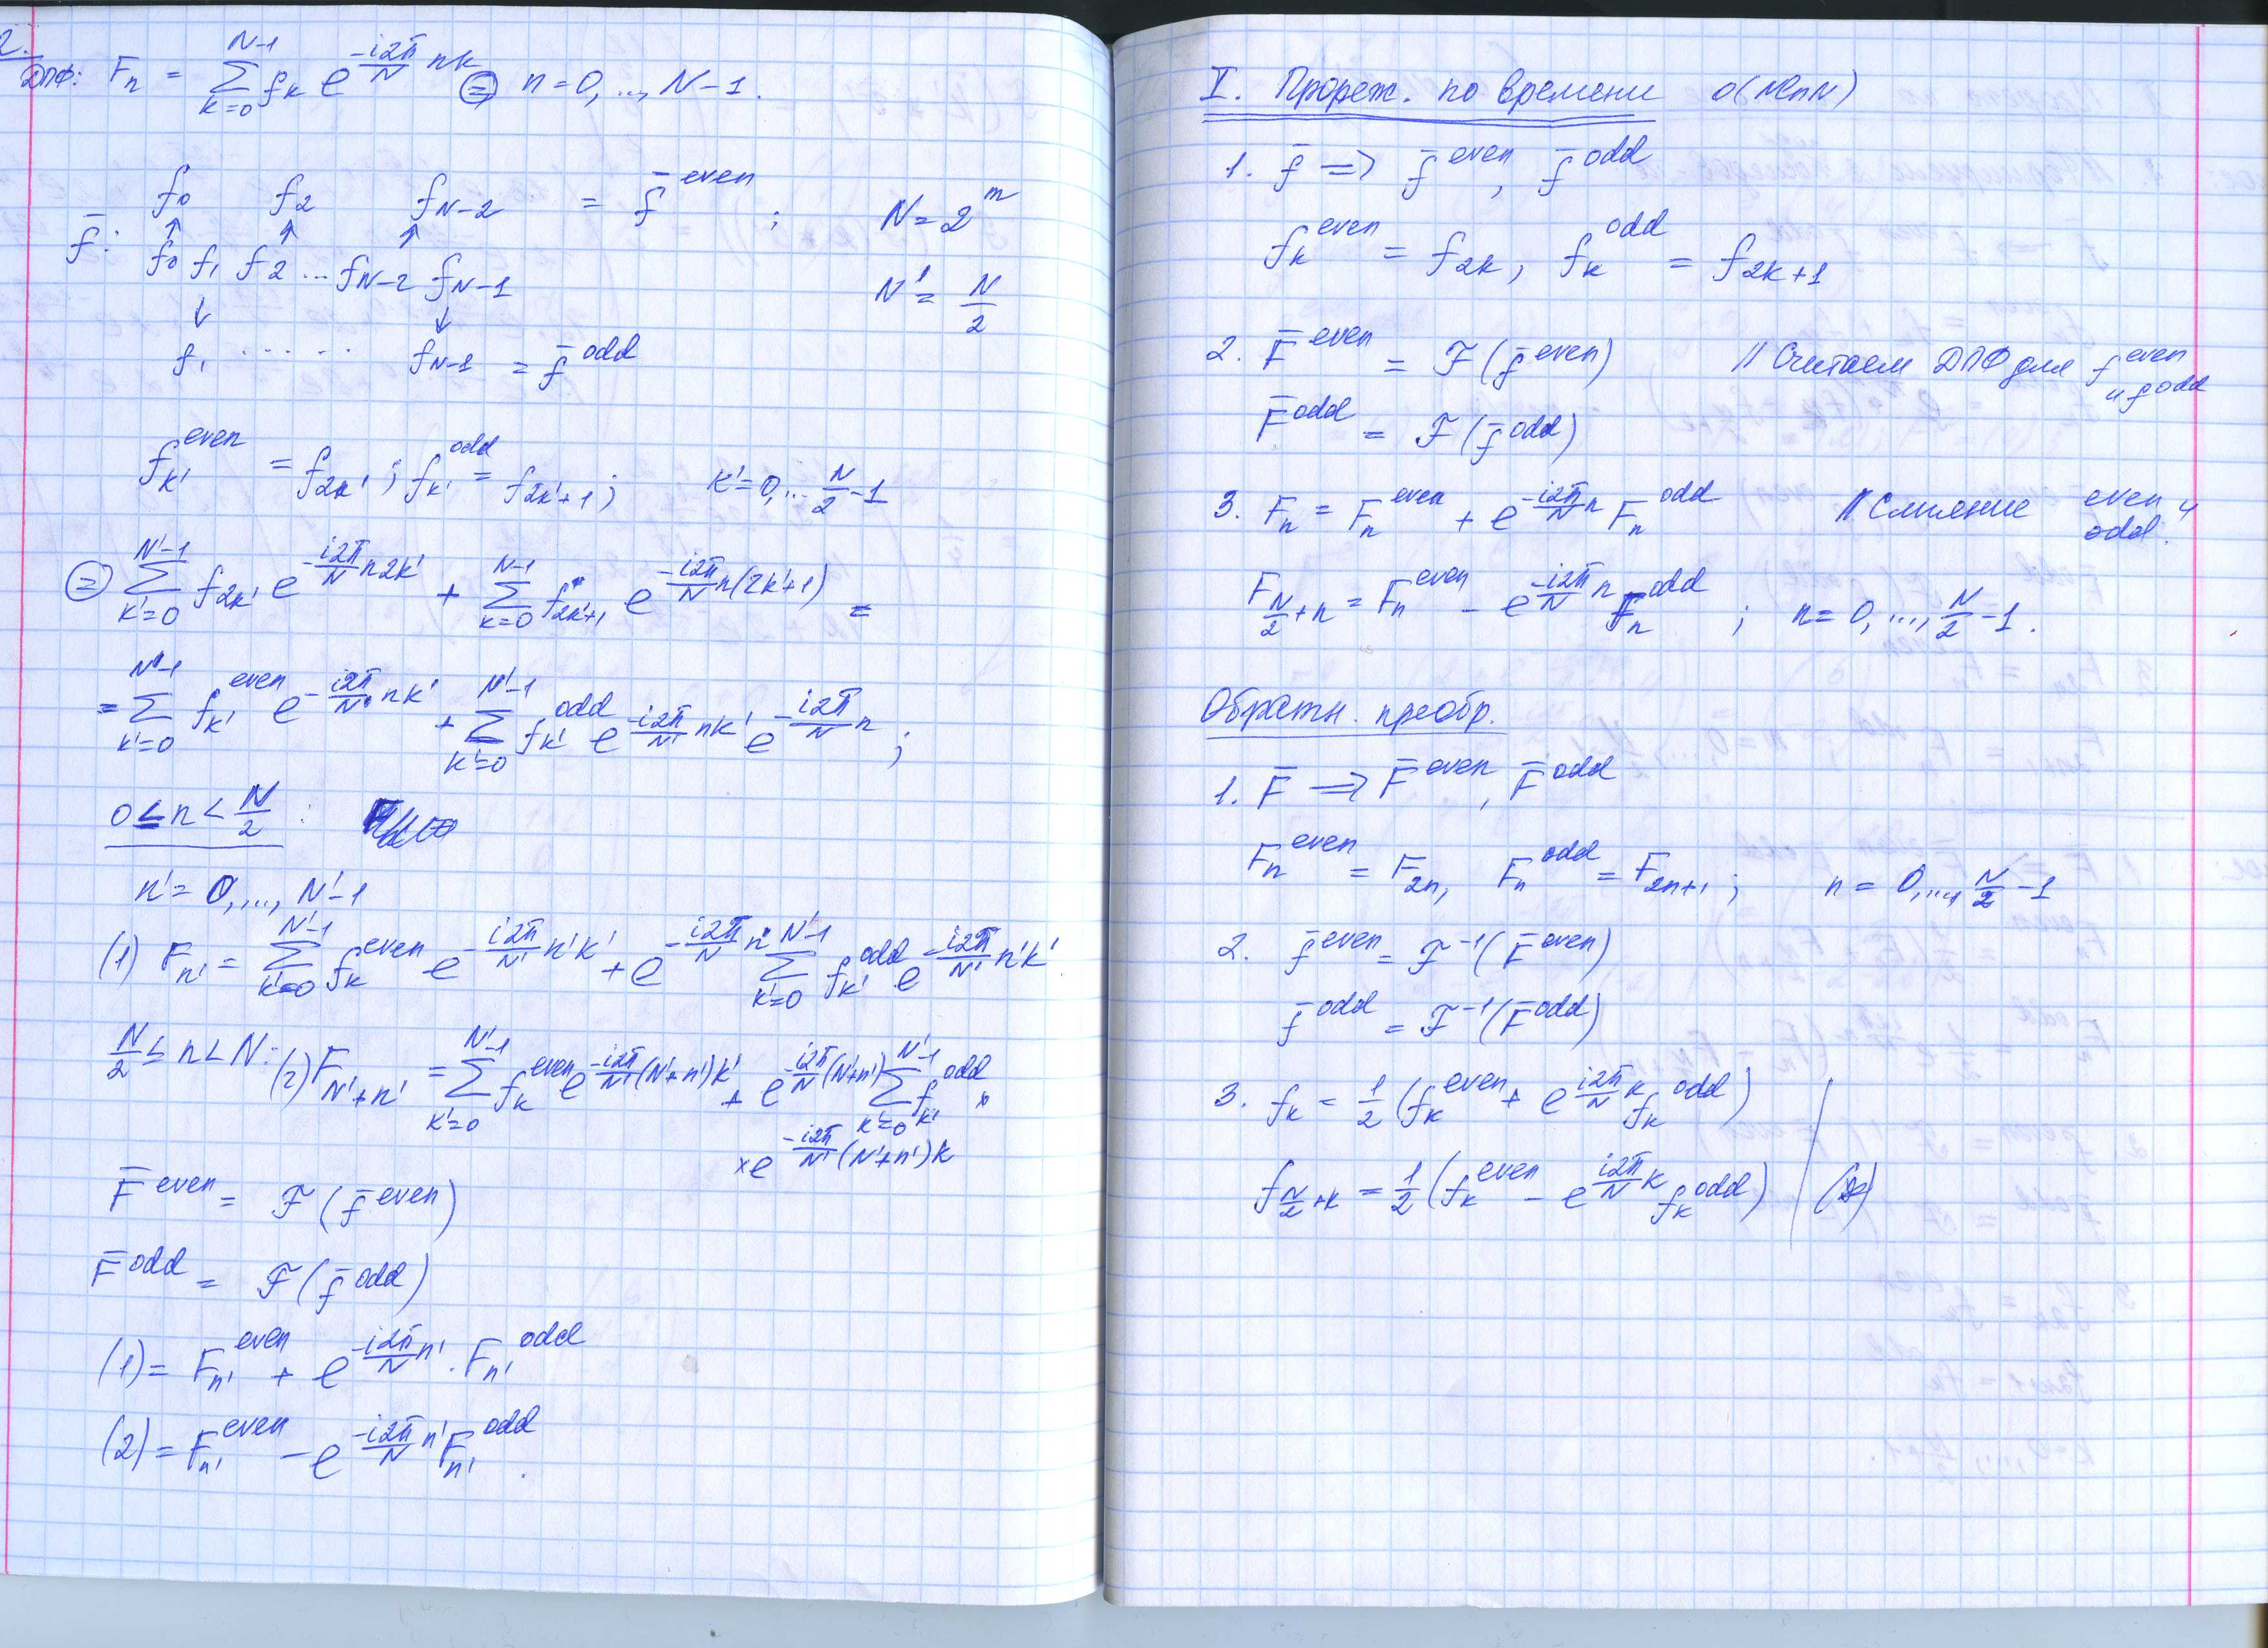 2.
ДПФ: F_n = \sum_{k=0}^{N-1} f_k e^{-\frac{i2π}{N} nk} (=) n=0, ..., N-1.
f_0 f_2 f_{N-2} = \bar{f}^{even} ; N=2^m
\bar{f}: f_0 f_1 f_2 ... f_{N-2} f_{N-1} N' = \frac{N}{2}
f_1 ...... f_{N-1} = \bar{f}^{odd}
f_{k'}^{even} = f_{2k'}; f_{k'}^{odd} = f_{2k'+1}; k'=0,... \frac{N}{2}-1
(=) \sum_{k'=0}^{N'-1} f_{2k'} e^{-\frac{i2π}{N} n2k'} + \sum_{k=0}^{N-1} f_{2k'+1} e^{-\frac{i2π}{N} n(2k'+1)} =
= \sum_{k'=0}^{N'-1} f_{k'}^{even} e^{-\frac{i2π}{N'} nk'} + \sum_{k'=0}^{N'-1} f_{k'}^{odd} e^{-\frac{i2π}{N'} nk'} e^{-\frac{i2π}{N} n};
0 ≤ n < \frac{N}{2} :
n' = 0, ..., N'-1
(1) F_{n'} = \sum_{k'=0}^{N'-1} f_k^{even} e^{-\frac{i2π}{N'} n'k'} + e^{-\frac{i2π}{N} n'} \sum_{k'=0}^{N'-1} f_{k'}^{odd} e^{-\frac{i2π}{N'} n'k'}
\frac{N}{2} ≤ n < N: (2) F_{N'+n'} = \sum_{k'=0}^{N'-1} f_k^{even} e^{-\frac{i2π}{N'}(N'+n')k'} + e^{-\frac{i2π}{N}(N'+n')} \sum_{k'=0}^{N'-1} f_{k'}^{odd} ×
× e^{-\frac{i2π}{N'}(N'+n')k}
\bar{F}^{even} = ℱ(\bar{f}^{even})
\bar{F}^{odd} = ℱ(\bar{f}^{odd})
(1) = F_{n'}^{even} + e^{-\frac{i2π}{N} n'} · F_{n'}^{odd}
(2) = F_{n'}^{even} - e^{-\frac{i2π}{N} n'} F_{n'}^{odd}.
I. Прореж. по времени O(NlnN)
1. \bar{f} => \bar{f}^{even}, \bar{f}^{odd}
f_k^{even} = f_{2k}, f_k^{odd} = f_{2k+1}
2. \bar{F}^{even} = ℱ(\bar{f}^{even}) // Считаем ДПФ для f^{even} и f^{odd}
\bar{F}^{odd} = ℱ(\bar{f}^{odd})
3. F_n = F_n^{even} + e^{-\frac{i2π}{N} n} F_n^{odd} // Слияние even и odd.
F_{\frac{N}{2}+n} = F_n^{even} - e^{-\frac{i2π}{N} n} F_n^{odd} ; n=0, ..., \frac{N}{2}-1.
Обратн. преобр.
1. \bar{F} => \bar{F}^{even}, \bar{F}^{odd}
F_n^{even} = F_{2n}, F_n^{odd} = F_{2n+1}; n = 0, ..., \frac{N}{2}-1
2. \bar{f}^{even} = ℱ^{-1}(\bar{F}^{even})
\bar{f}^{odd} = ℱ^{-1}(\bar{F}^{odd})
3. f_k = \frac{1}{2}(f_k^{even} + e^{\frac{i2π}{N} k} f_k^{odd})
f_{\frac{N}{2}+k} = \frac{1}{2}(f_k^{even} - e^{\frac{i2π}{N} k} f_k^{odd}) (*)